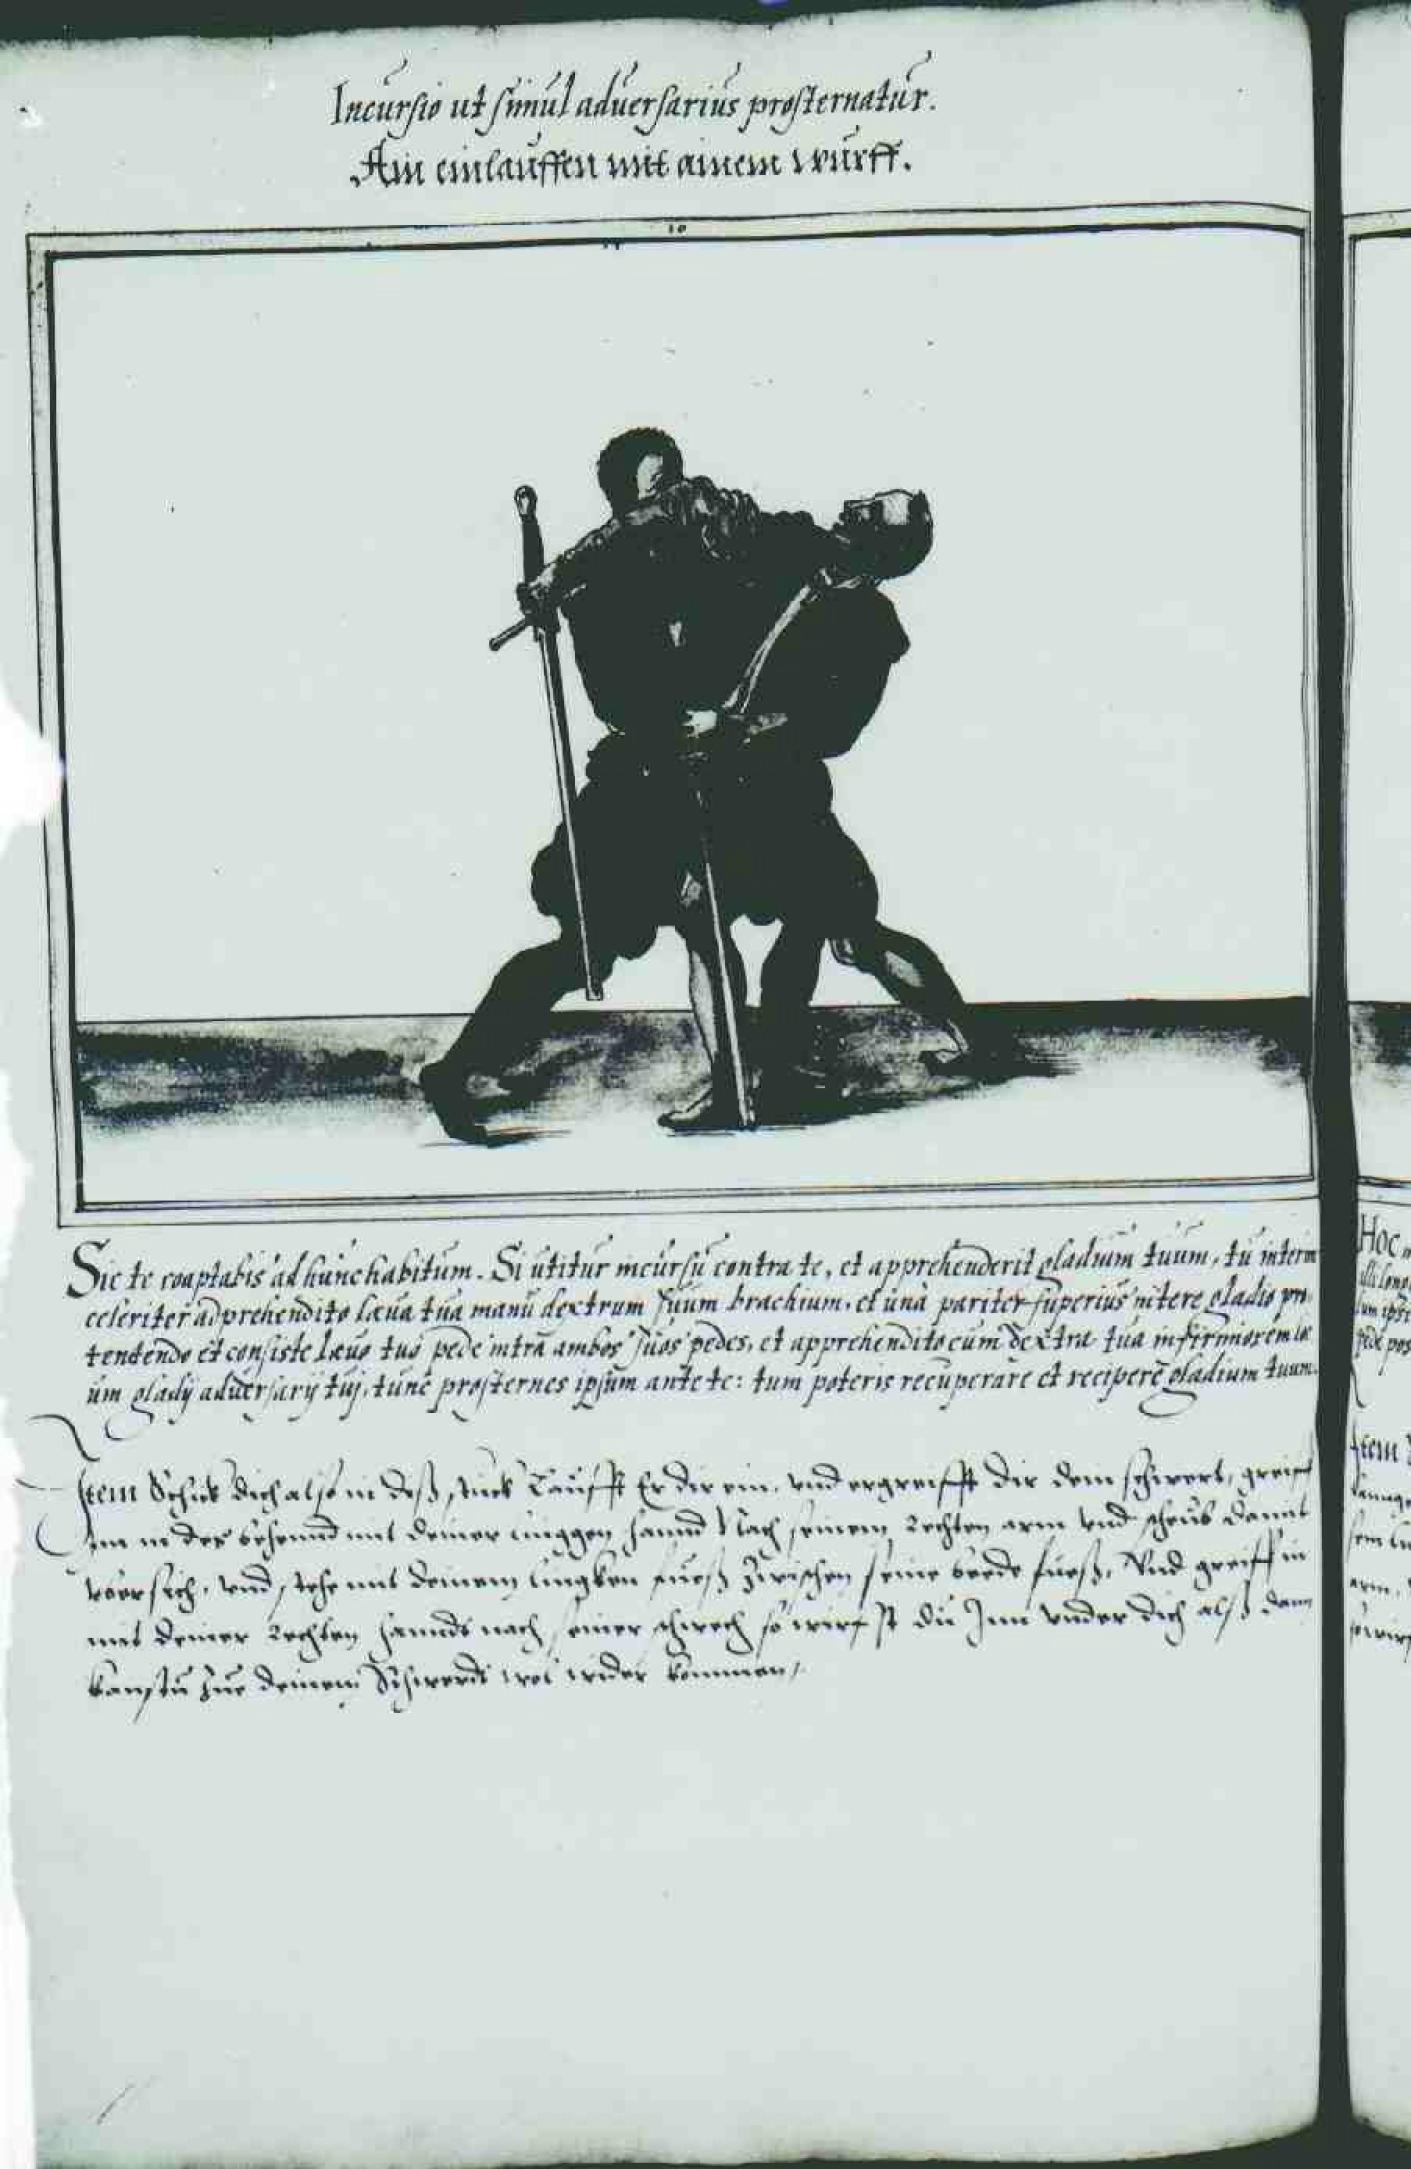 Incursio ut simul adversarius prosternatur.
Ain einlauffen mit ainem wurff.
10
Sic te coaptabis ad hunc habitum. Si utitur incursu contra te, et apprehenderit gladium tuum, tu interim
celeriter adprehendito læva tua manu dextrum suum brachium, et una pariter superius nitere gladio pro
tendendo et consiste lævo tuo pede intra ambos suos pedes, et apprehendito cum dextra tua infirmiorem
um gladij adversarij tuj, tunc prosternes ipsum ante te: tum poteris recuperare et recipere gladium tuum.
Item Schick dich also in deß stuck Laufft Er dir ein, und ergreifft dir dein schwert, greiff
im in der behennd mit deiner linggen hannd Nach seinem rechten arm und scheub damit
ubersich, und stehe mit deinem lingken fueß zwischen seine beede fueß, Und greiff im
mit deiner rechten hannd nach seiner schwech so wirfst du Inn under dich alß dann
kanstu zue deinem Schwerdt wol wider kommen,
Hoc
Item